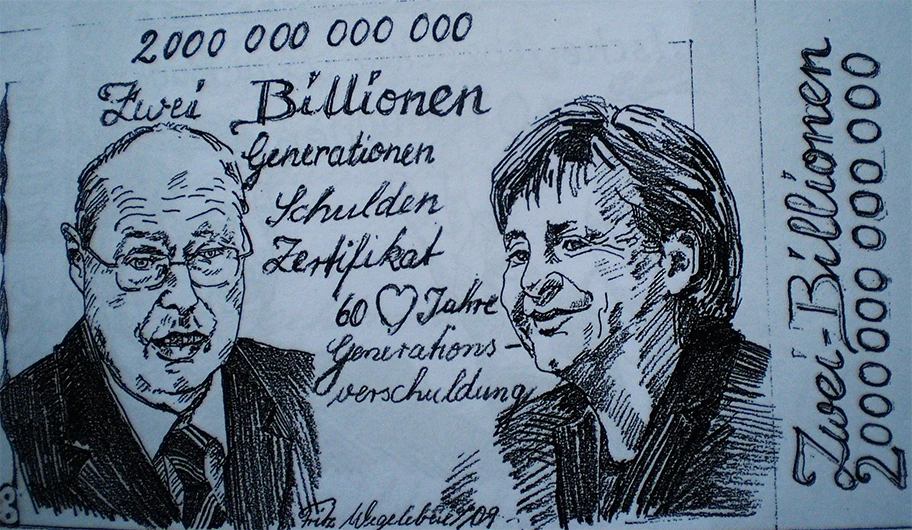 2000 000 000 000
Zwei Billionen
Generationen
Schulden
Zertifikat
60 ♡ Jahre
Generations-
verschuldung
Fritz
09
Zwei-Billionen
2000 000 000 000